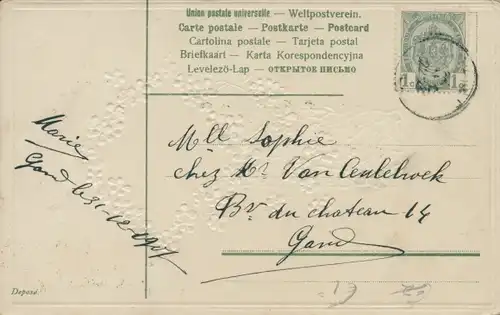 Union postale universelle — Weltpostverein.
Carte postale — Postkarte — Postcard
Cartolina postale — Tarjeta postal
Briefkaart — Karta Korespondencyjna
Levelező-Lap — ОТКРЫТОЕ ПИСЬМО
1
Marie
Gand le 31-12-1907
Mll Sophie
chez Mr Van
Bv. du chateau 14
Gand
Deposé.